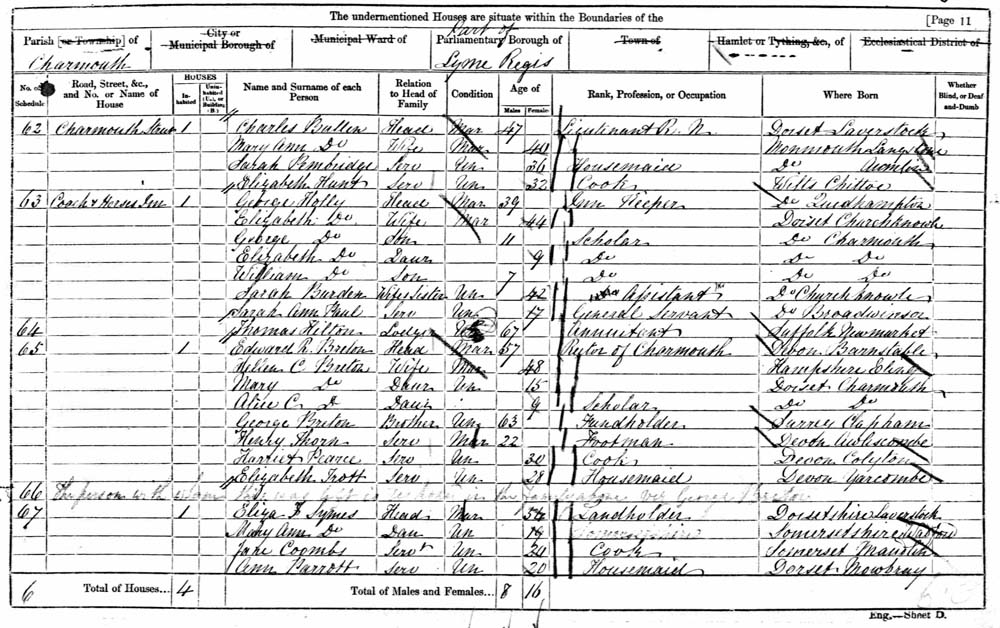 The undermentioned Houses are situate within the Boundaries of the [Page 11
Parish [or Township] of Charmouth
City or Municipal Borough of
Municipal Ward of
Part of Parliamentary Borough of Lyme Regis
Town of
Hamlet or Tything, &c., of
Ecclesiastical District of
No. of Schedule
Road, Street, &c., and No. or Name of House
HOUSES
Inhabited
Uninhabited (U.), or Building (B.)
Name and Surname of each Person
Relation to Head of Family
Condition
Age of
Males Females
Rank, Profession, or Occupation
Where Born
Whether Blind, or Deaf-and-Dumb
62 Charmouth Street 1 Charles Bullen Head Mar 47 Lieutenant R. N. Dorset Laverstock
Mary Ann Do Wife Mar 40 Monmouth
Sarah Pembridge Serv Un 36 Housemaid Do
Elizabeth Hunt Serv Un 32 Cook Wilts Chittoe
63 Coach & Horses Inn 1 George Holly Head Mar 39 Inn Keeper Do Quidhampton
Elizabeth Do Wife Mar 44 Dorset Churchknowle
George Do Son 11 Scholar Do Charmouth
Elizabeth Do Daur 9 Do Do Do
William Do Son 7 Do Do Do
Sarah Burden Wifes Sister Un 42 Assistant Do Churchknowle
Sarah Ann Paul Serv Un 17 General Servant Do Broadwinsor
64 Thomas Hilton Lodger 67 Annuitant Suffolk Newmarket
65 1 Edward R. Breton Head Mar 57 Rector of Charmouth Devon Barnstable
Helen C Breton Wife Mar 48 Hampshire Eling
Mary Do Daur Un 15 Dorset Charmouth
Alice C. Do Daur 9 Scholar Do Do
George Breton Brother Un 63 Fundholder Surrey Clapham
Henry Thorn Serv Mar 22 Footman Devon Awlescombe
Harriet Pearce Serv Un 30 Cook Devon Colyton
Elizabeth Trott Serv Un 28 Housemaid Devon Yarcombe
66 The person with whom this was left is in the above viz George Breton
67 1 Eliza Symes Head Mar 54 Landholder Dorsetshire Laverstock
Mary Ann Do Dau Un 19 Somersetshire
Jane Coombs Servt Un 24 Cook Somerset
Ann Parrott Serv Un 20 Housemaid Dorset Mowbray
6 Total of Houses... 4 Total of Males and Females... 8 16
Eng.—Sheet D.